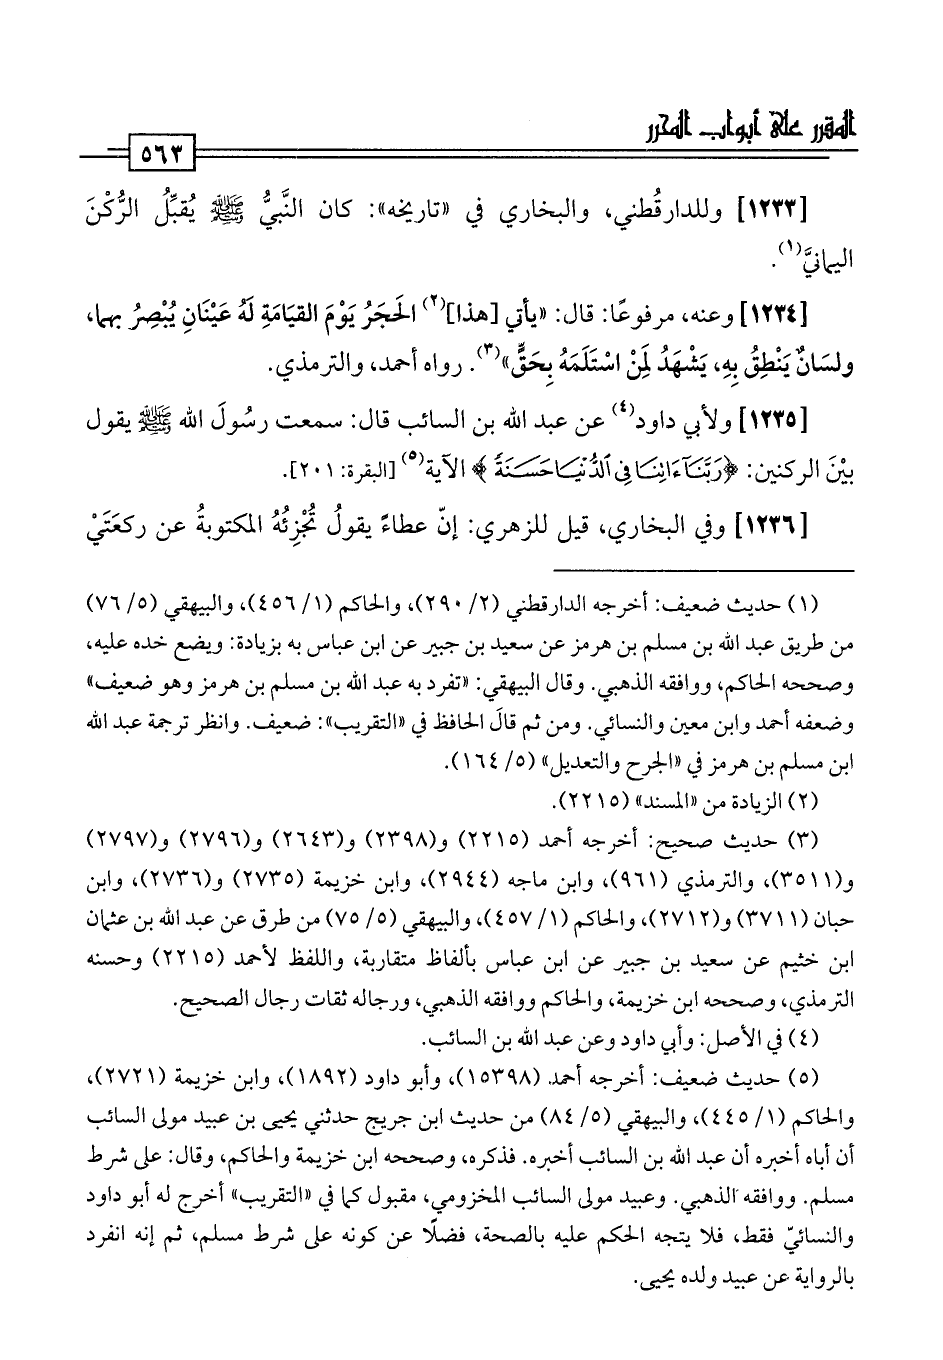 المقرر على أبواب المحرر
٥٦٣
[١٢٣٣] وللدارقُطني، والبخاري في «تاريخه»: كان النَّبيُّ ﷺ يُقبِّلُ الرُّكْنَ
اليمانيَّ(١).
[١٢٣٤] وعنه، مرفوعًا: قال: «يأتي [هذا](٢) الحَجَرُ يَوْمَ القيَامَةِ لَهُ عَيْنَانِ يُبْصِرُ بهما،
ولسَانٌ يَنْطِقُ بِهِ، يَشْهَدُ لِمَنْ اسْتَلَمَهُ بِحَقٍّ»(٣). رواه أحمد، والترمذي.
[١٢٣٥] ولأبي داود(٤) عن عبد الله بن السائب قال: سمعت رسُولَ الله ﷺ يقول
بيْنَ الركنين: ﴿رَبَّنَآ ءَاتِنَا فِي ٱلدُّنْيَا حَسَنَةً﴾ الآية(٥) [البقرة: ٢٠١].
[١٢٣٦] وفي البخاري، قيل للزهري: إنّ عطاءً يقولُ تُجْزِئُهُ المكتوبةُ عن ركعَتَيْ
(١) حديث ضعيف: أخرجه الدارقطني (٢/ ٢٩٠)، والحاكم (١/ ٤٥٦)، والبيهقي (٥/ ٧٦)
من طريق عبد الله بن مسلم بن هرمز عن سعيد بن جبير عن ابن عباس به بزيادة: ويضع خده عليه،
وصححه الحاكم، ووافقه الذهبي. وقال البيهقي: «تفرد به عبد الله بن مسلم بن هرمز وهو ضعيف»
وضعفه أحمد وابن معين والنسائي. ومن ثم قالَ الحافظ في «التقريب»: ضعيف. وانظر ترجمة عبد الله
ابن مسلم بن هرمز في «الجرح والتعديل» (٥/ ١٦٤).
(٢) الزيادة من «المسند» (٢٢١٥).
(٣) حديث صحيح: أخرجه أحمد (٢٢١٥) و(٢٣٩٨) و(٢٦٤٣) و(٢٧٩٦) و(٢٧٩٧)
و(٣٥١١)، والترمذي (٩٦١)، وابن ماجه (٢٩٤٤)، وابن خزيمة (٢٧٣٥) و(٢٧٣٦)، وابن
حبان (٣٧١١) و(٢٧١٢)، والحاكم (١/ ٤٥٧)، والبيهقي (٥/ ٧٥) من طرق عن عبد الله بن عثمان
ابن خثيم عن سعيد بن جبير عن ابن عباس بألفاظ متقاربة، واللفظ لأحمد (٢٢١٥) وحسنه
الترمذي، وصححه ابن خزيمة، والحاكم ووافقه الذهبي، ورجاله ثقات رجال الصحيح.
(٤) في الأصل: وأبي داود وعن عبد الله بن السائب.
(٥) حديث ضعيف: أخرجه أحمد (١٥٣٩٨)، وأبو داود (١٨٩٢)، وابن خزيمة (٢٧٢١)،
والحاكم (١/ ٤٤٥)، والبيهقي (٥/ ٨٤) من حديث ابن جريج حدثني يحيى بن عبيد مولى السائب
أن أباه أخبره أن عبد الله بن السائب أخبره. فذكره، وصححه ابن خزيمة والحاكم، وقال: على شرط
مسلم. ووافقه الذهبي. وعبيد مولى السائب المخزومي، مقبول كما في «التقريب» أخرج له أبو داود
والنسائيّ فقط، فلا يتجه الحكم عليه بالصحة، فضلًا عن كونه على شرط مسلم، ثم إنه انفرد
بالرواية عن عبيد ولده يحيى.